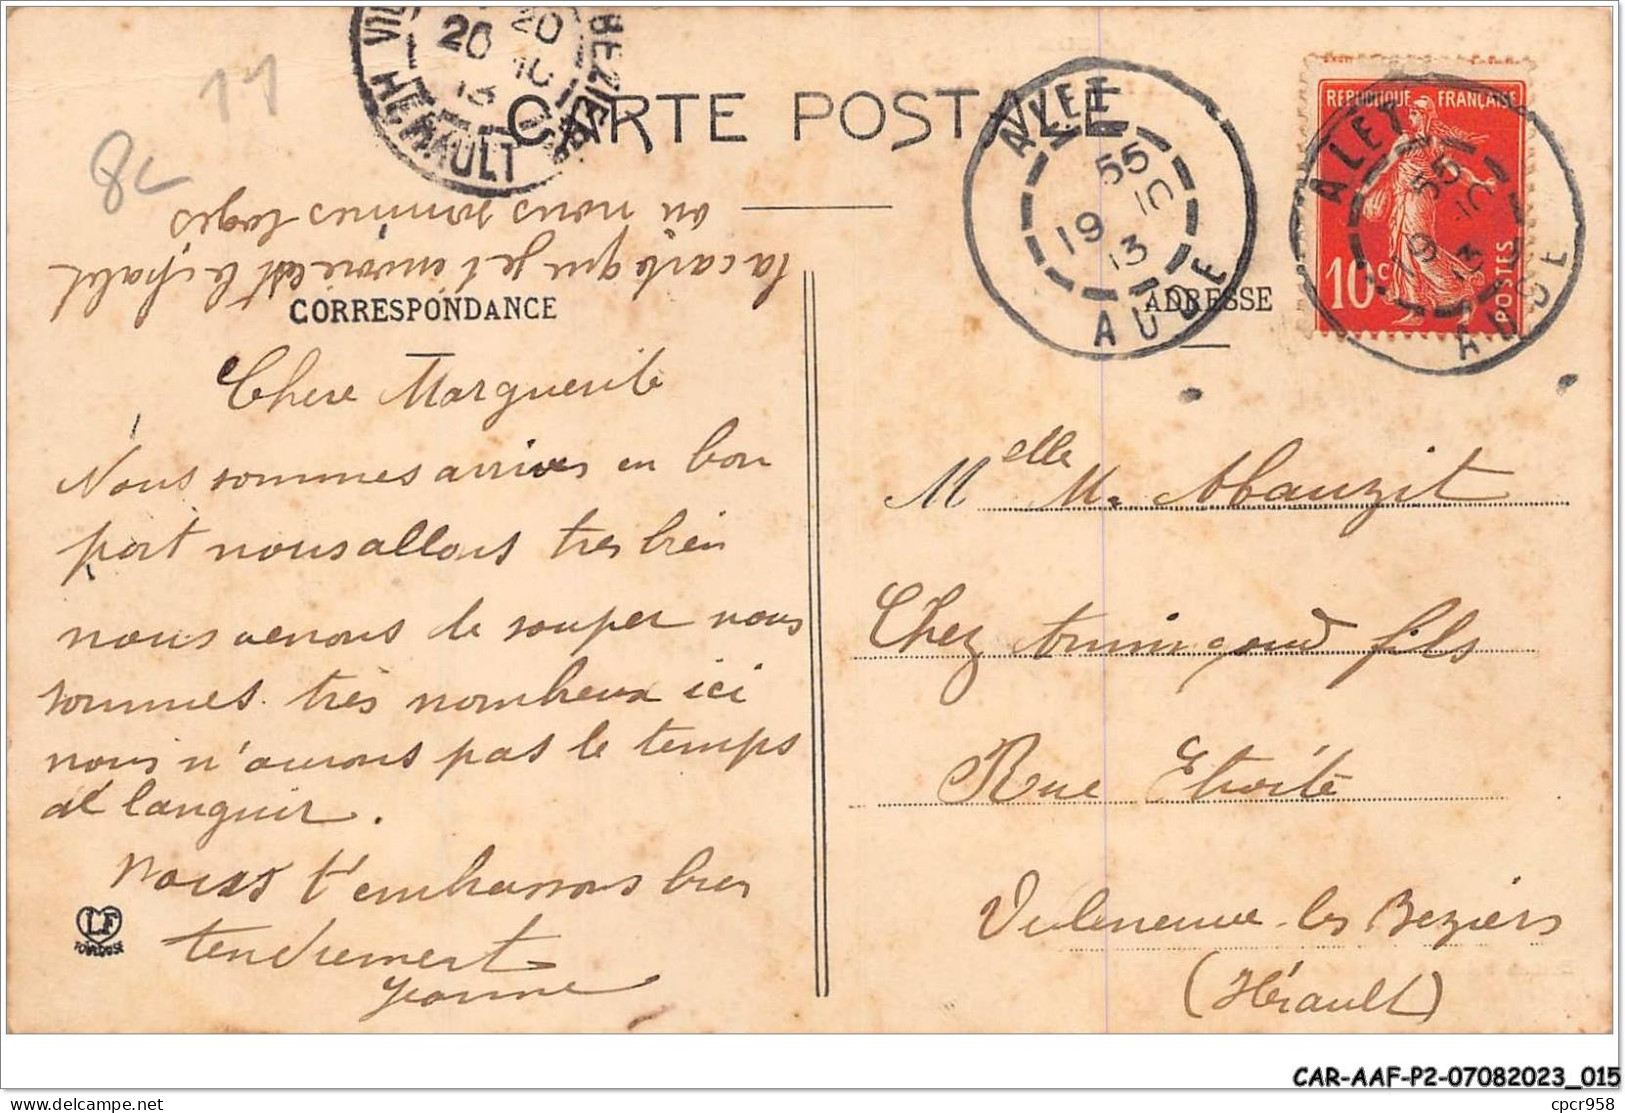 11
8c
VIL BEZIERS
20 20
10
13
HERAULT
CARTE POSTALE
ALET
55
19 10
13
AUDE
REPUBLIQUE FRANÇAISE
10c
POSTES
ALET
55
19 10
13
AUDE
la carte que je t'envoie est le chalet
ou nous sommes loges
CORRESPONDANCE
ADRESSE
Chere Marguerite
Nous sommes arrives en bon
port nous allons tres bien
nous venons de souper nous
sommes très nombreux ici
nous n'aurons pas le temps
de languir.
Nous t'embrassons bien
tendrement
Jeanne
LF
TOULOUSE
Melle M. Mauzit
Chez fils
Rue Etroite
Villeneuve les Beziers
(Hérault)
CAR-AAF-P2-07082023_015
delcampe.net
cpcr958